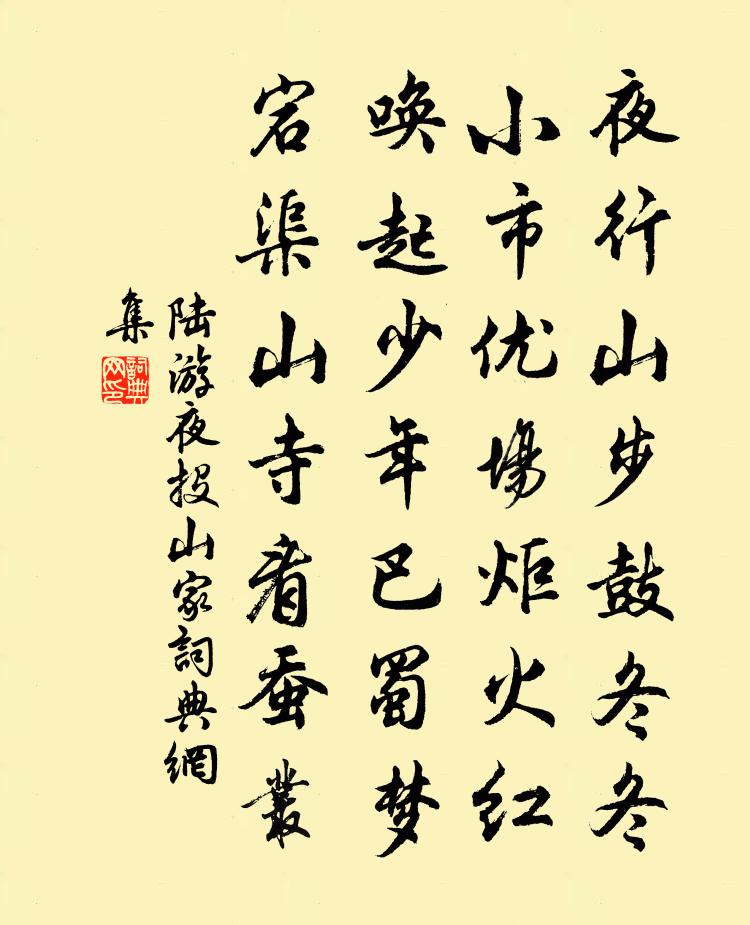 夜行山步鼓冬冬
小市优場炬火红
唤起少年巴蜀梦
宕渠山寺看蚕叢
陆游夜投山家詞典網
集
詞典网印